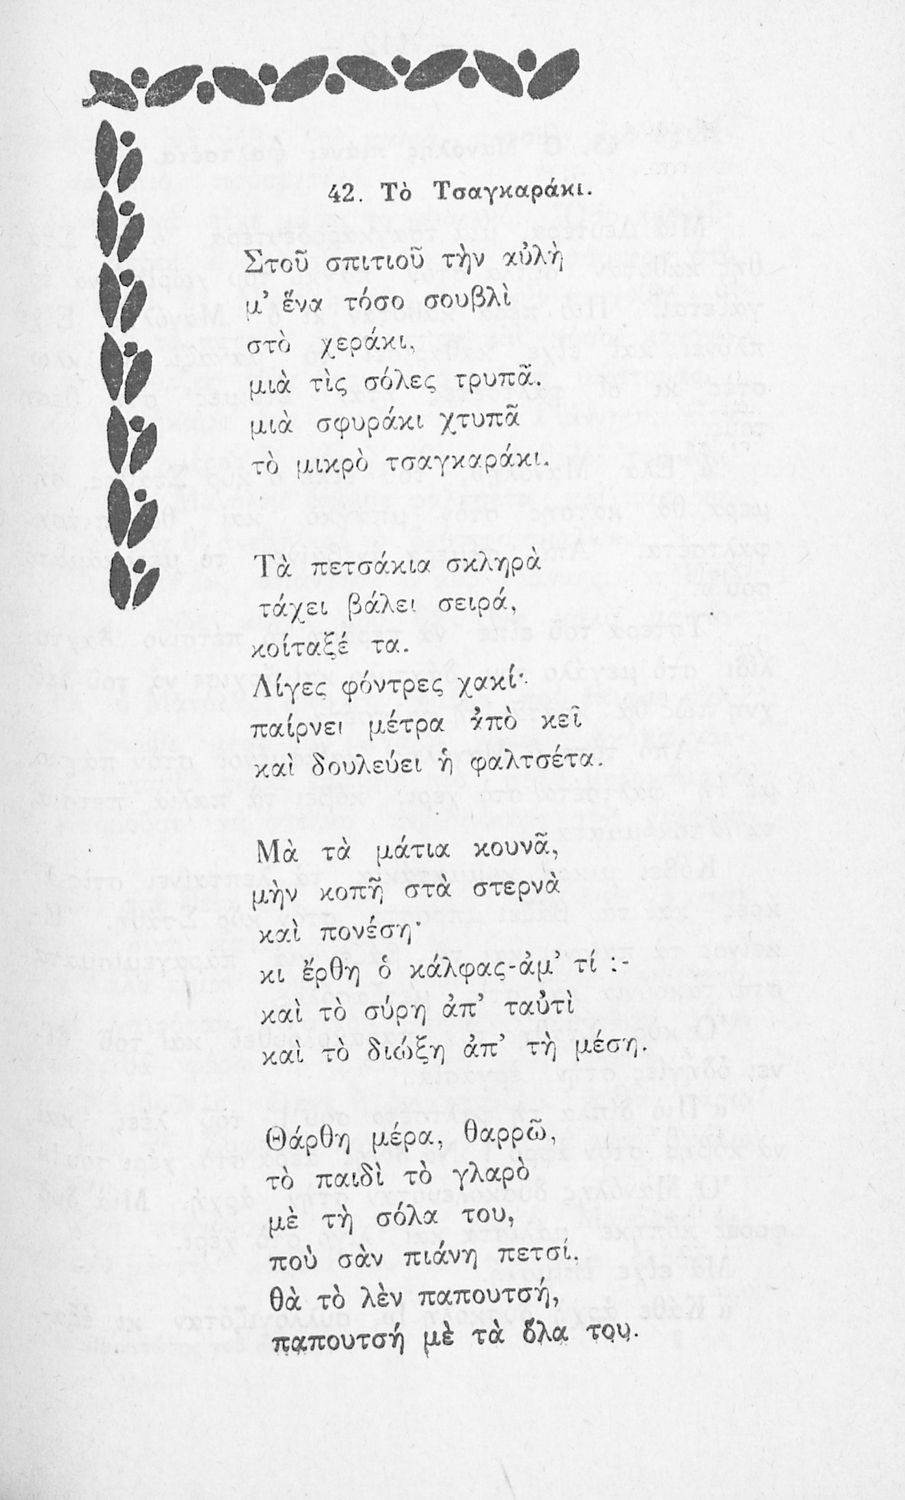 42. Τὸ Τσαγκαράκι.
Στοῦ σπιτιοῦ τὴν αὐλὴ
μ' ἕνα τόσο σουβλὶ
στὸ χεράκι,
μιὰ τὶς σόλες τρυπᾶ.
μιὰ σφυράκι χτυπᾶ
τὸ μικρὸ τσαγκαράκι.
Τὰ πετσάκια σκληρὰ
τάχει βάλει σειρά,
κοίταξέ τα.
Λίγες φόντρες χακί·
παίρνει μέτρα ἀπὸ κεῖ
καὶ δουλεύει ἡ φαλτσέτα.
Μὰ τὰ μάτια κουνᾶ,
μὴν κοπῆ στὰ στερνὰ
καὶ πονέση·
κι ἔρθη ὁ κάλφας-ἀμ' τί :-
καὶ τὸ σύρη ἀπ' ταὐτὶ
καὶ τὸ διώξη ἀπ' τὴ μέση.
Θάρθη μέρα, θαρρῶ,
τὸ παιδὶ τὸ γλαρὸ
μὲ τὴ σόλα του,
ποὺ σὰν πιάνη πετσί,
θὰ τὸ λὲν παπουτσή,
παπουτσή μὲ τὰ ὅλα του.